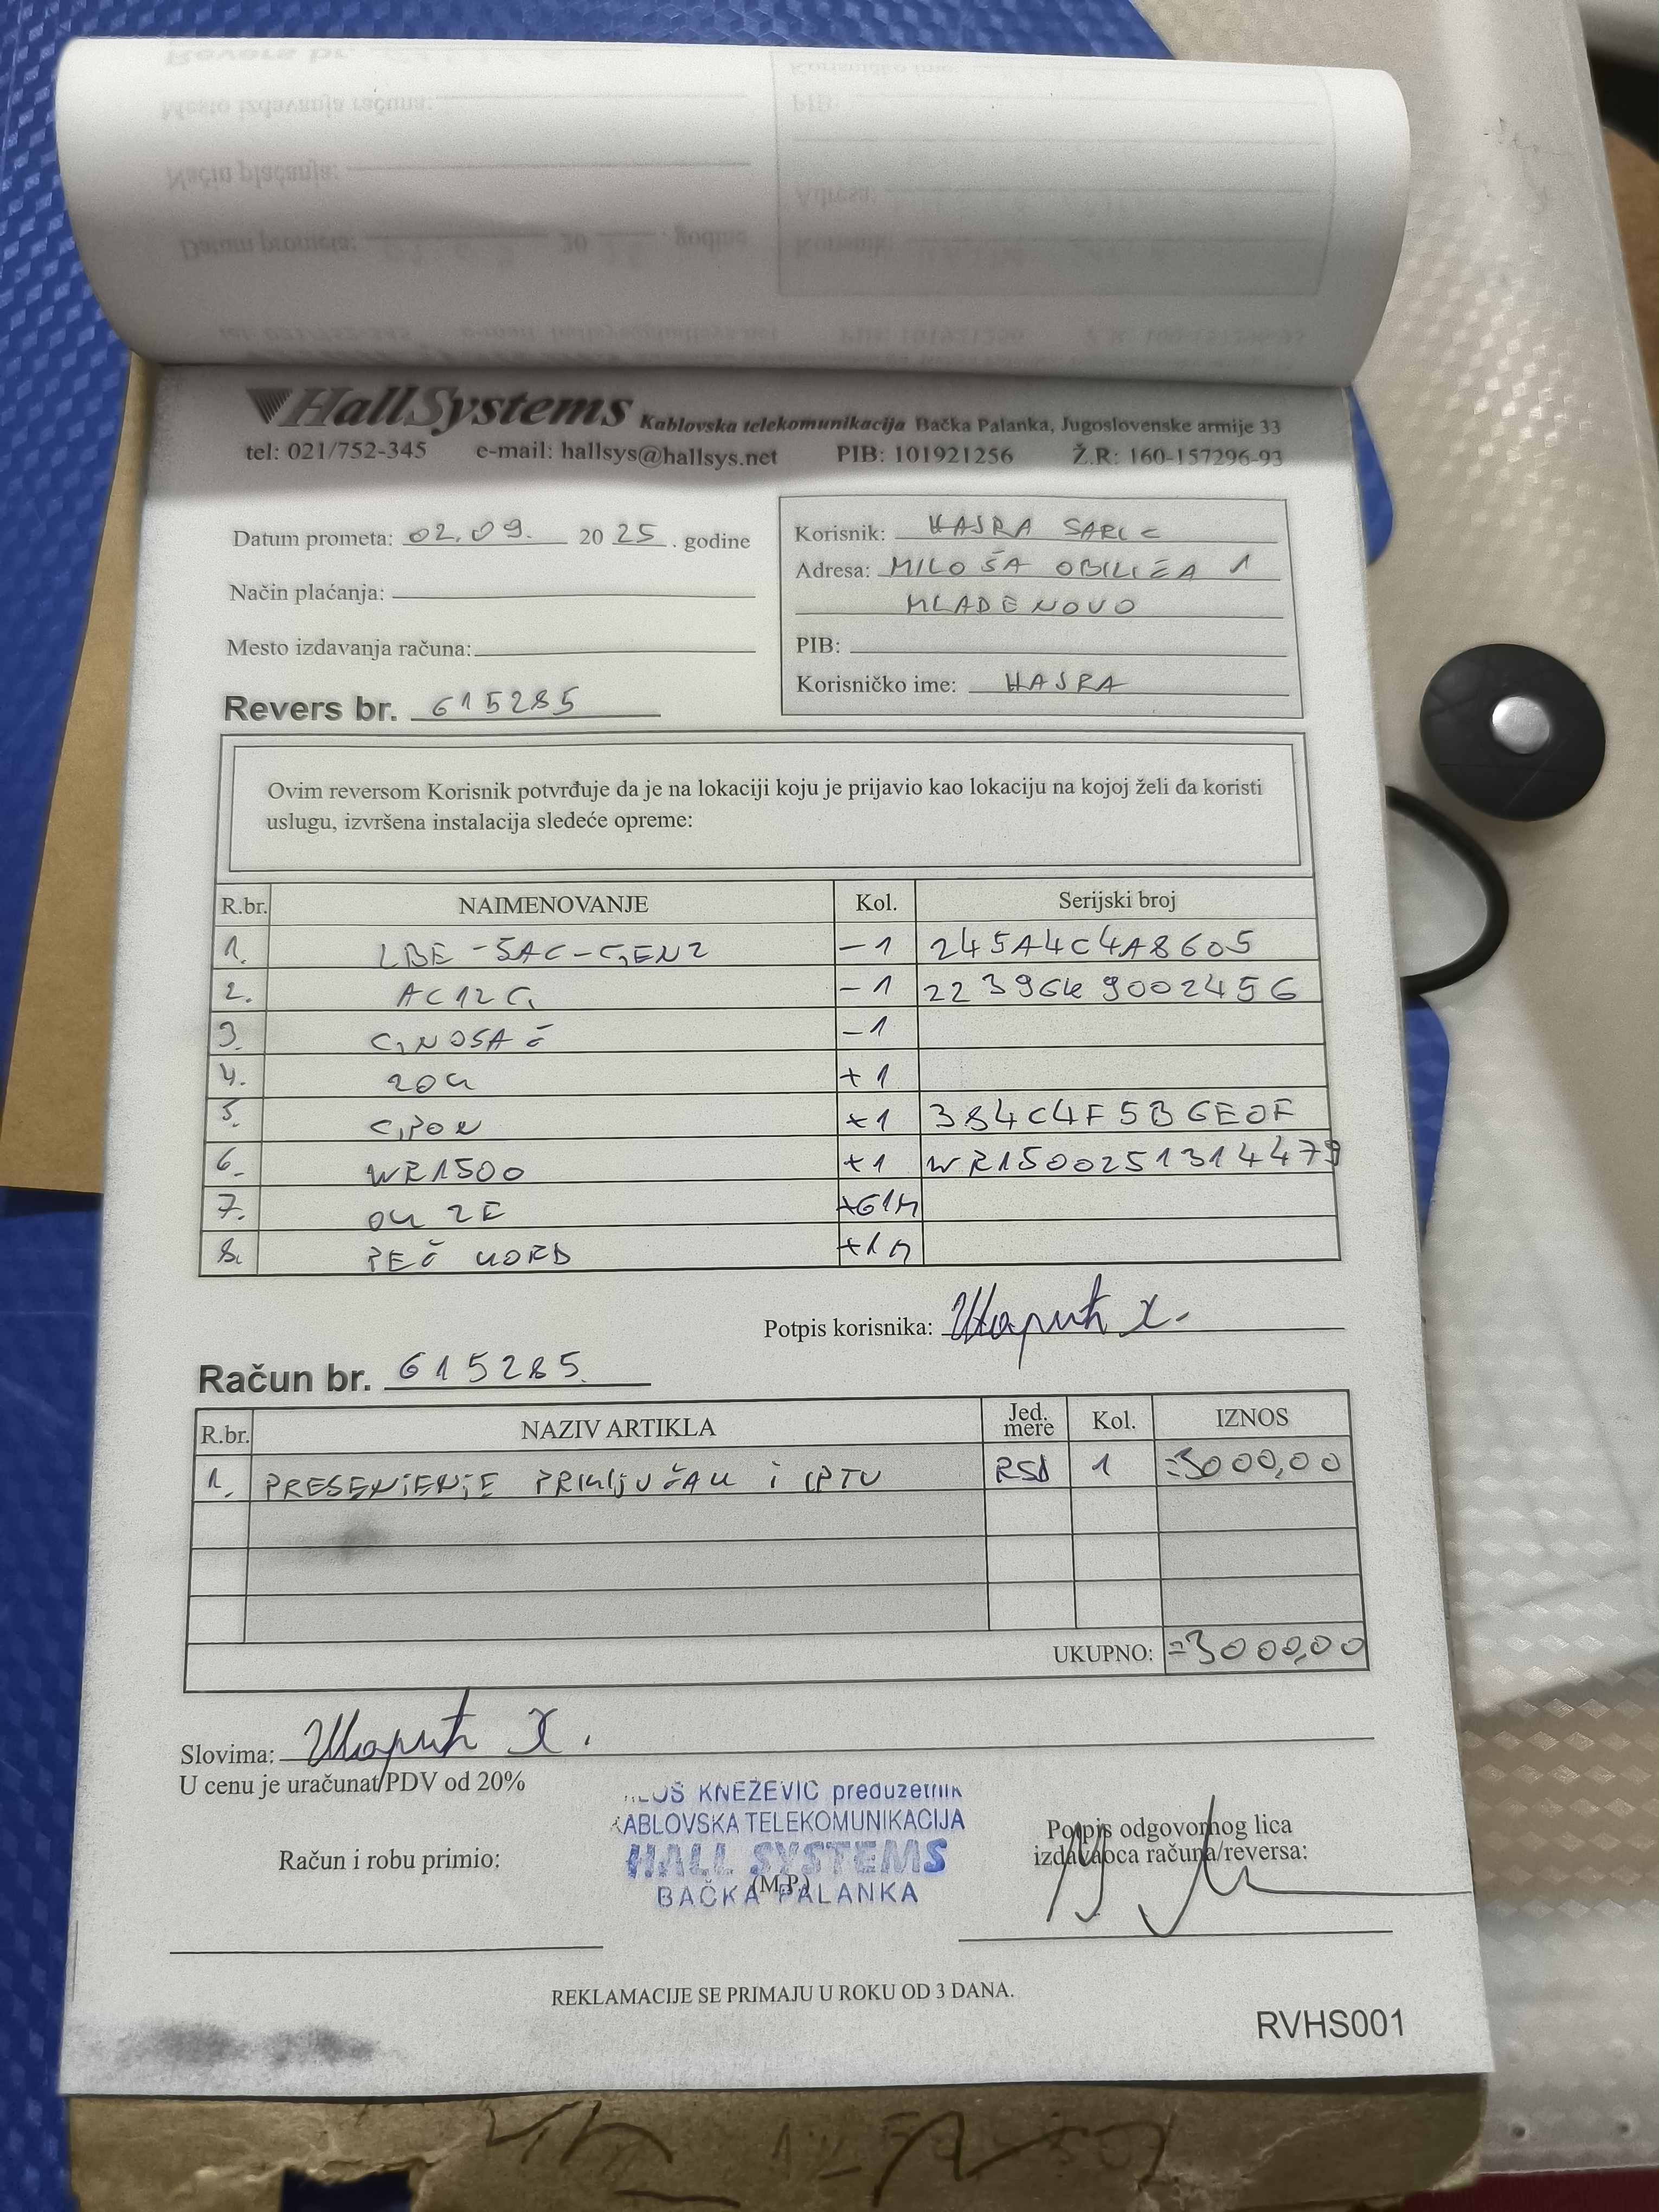 HallSystems Kablovska telekomunikacija Bačka Palanka, Jugoslovenske armije 33
tel: 021/752-345 e-mail: hallsys@hallsys.net PIB: 101921256 Ž.R: 160-157296-93
Datum prometa: 02.09. 2025. godine
Način plaćanja:
Mesto izdavanja računa:
Revers br. 615285
Korisnik: HAJRA SARIĆ
Adresa: MILOŠA OBILIĆA 1
MLADENOVO
PIB:
Korisničko ime: HAJRA
Ovim reversom Korisnik potvrđuje da je na lokaciji koju je prijavio kao lokaciju na kojoj želi da koristi
uslugu, izvršena instalacija sledeće opreme:
R.br. NAIMENOVANJE Kol. Serijski broj
1. LBE-5AC-GEN2 -1 245A4C4A8605
2. AC12G -1
3. -1
4. +1
5. GPON +1 384C4F5B6E0F
6. WR1500 +1 WR1500251314479
7. OK 2E +61M
8. PEČ KORD +1M
Potpis korisnika: Шарић Х.
Račun br. 615285
R.br. NAZIV ARTIKLA Jed. mere Kol. IZNOS
1. PRESENJENJE PRIKLJUČAK i IPTV RSD 1 =3000,00
UKUPNO: =3000,00
Slovima: Шарић Х.
U cenu je uračunat PDV od 20%
KNEŽEVIĆ preduzetnik
KABLOVSKA TELEKOMUNIKACIJA
HALL SYSTEMS
(M.P.)
BAČKA PALANKA
Račun i robu primio:
Potpis odgovornog lica
izdavaoca računa/reversa:
REKLAMACIJE SE PRIMAJU U ROKU OD 3 DANA.
RVHS001